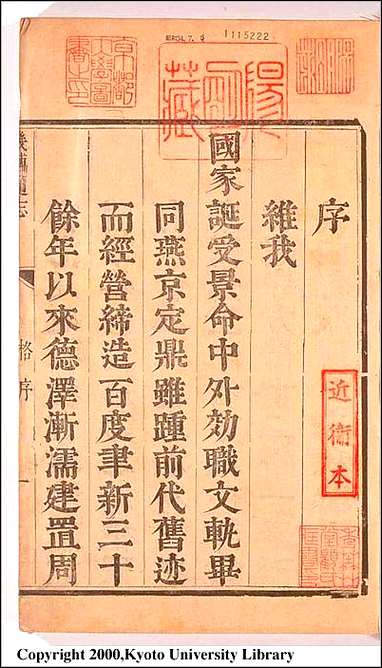 1115222
京都
大學圖
書之印
藏
序
維我
國家誕受景命中外効職文軌畢
同燕京定鼎雖踵前代舊迹
而經營締造百度聿新三十
餘年以來德澤漸濡建置周
格序
近衞本
Copyright 2000,Kyoto University Library